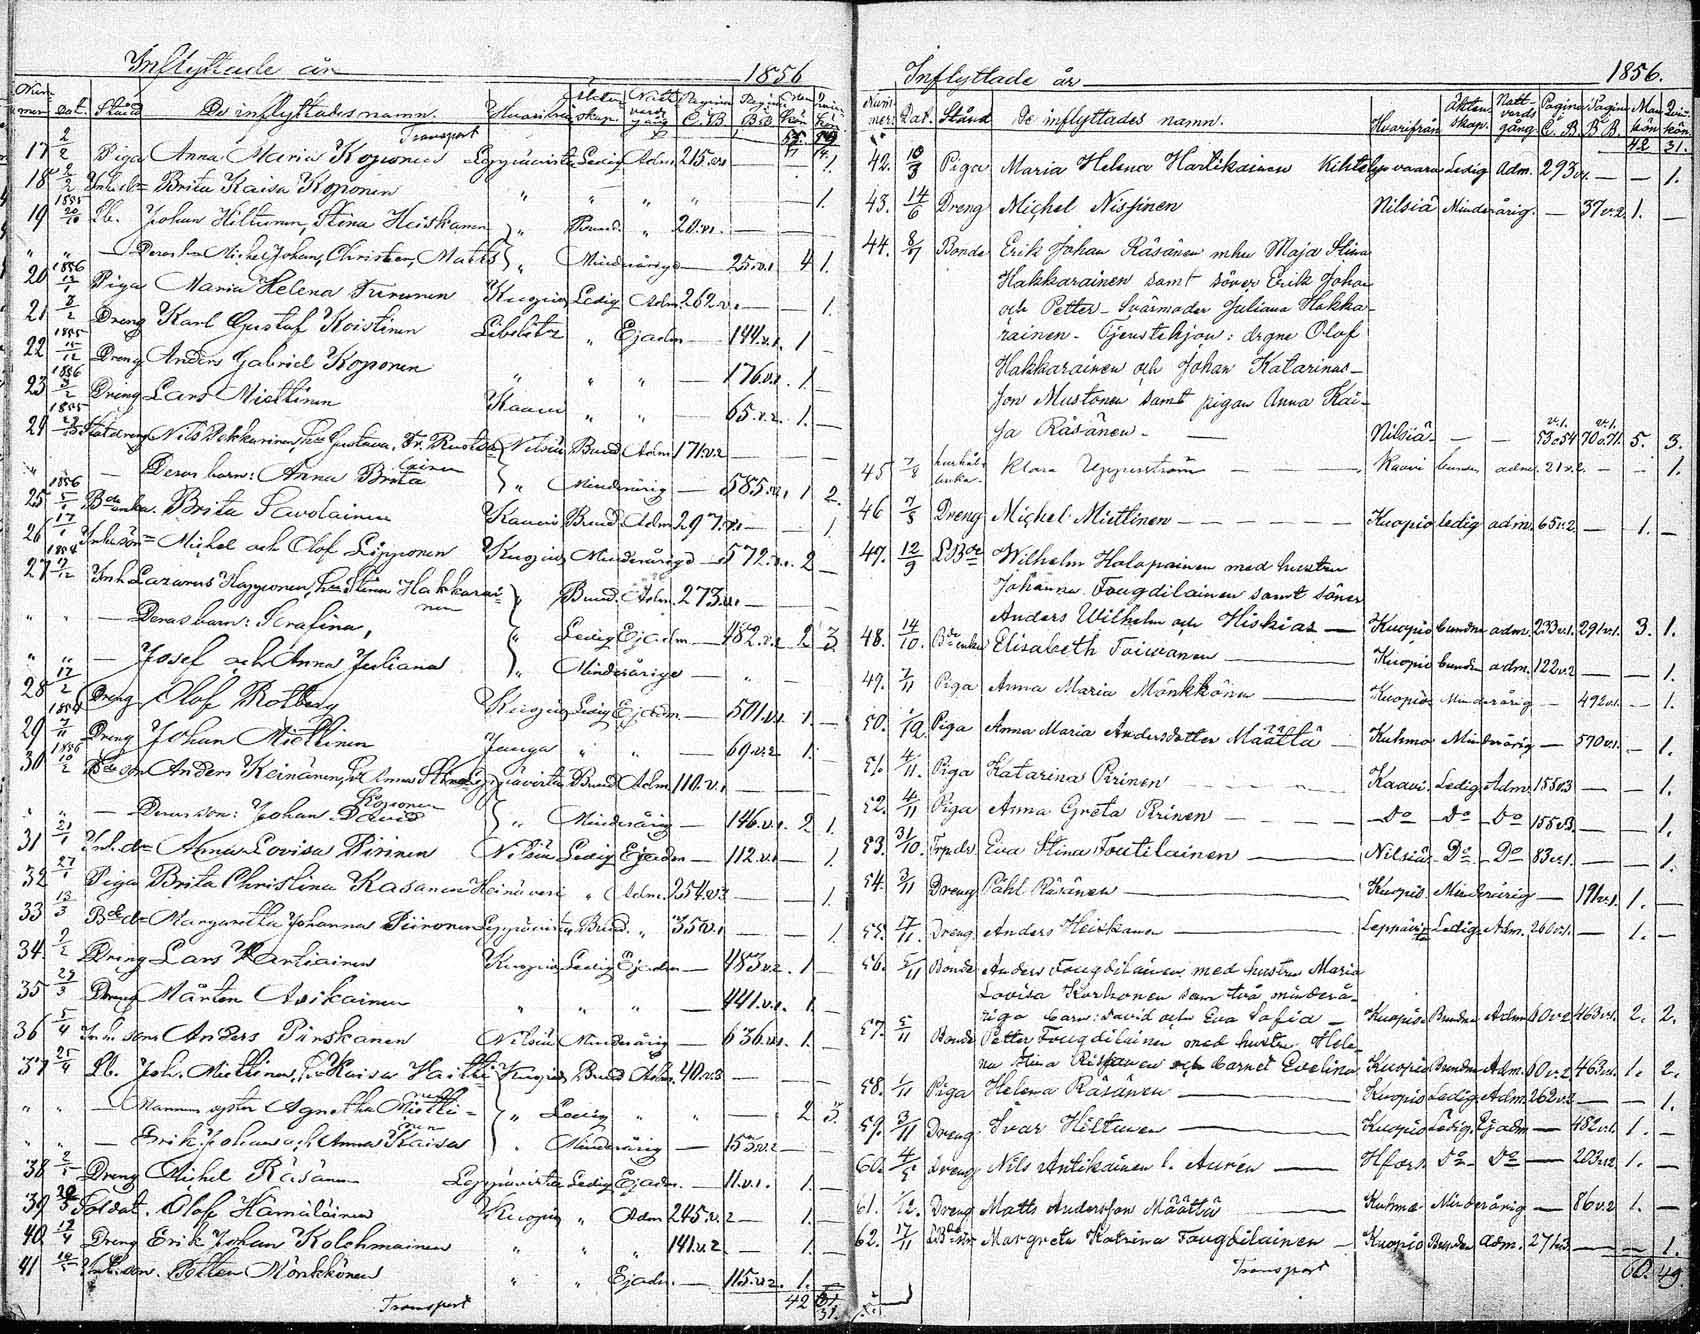 Inflyttade år 1856
Num mer. Dat. Stånd De inflyttades namn. Hvarifrån Äkten skap. Natt vards gång Pagina C.B. Pagina B.B. Man kön Qvin kön
Transport
17 2/2 Piga Anna Maria Koponen Leppävirta Ledig Adm. 215 — — 1.
18 2/2 Brita Kaisa Koponen " " " " — — 1.
1855
19 20/10 Lb. Johan Hiltunen, Stina Heiskanen " " 20.v.1. — — —
" " — Deras Michel, Johan, Christer, Matts " Minderårige — 25.v.1 4 1.
1856
20 12/1 Piga Maria Helena Turunen Kuopio Ledig Adm. 262.v. — — 1.
21 8/2 Dreng Karl Gustaf Koistinen Libelitz " Ej adm — 144.v.1. 1 —
1855
22 /12 Dreng Anders Gabriel Koponen " " " — 176.v.1. 1 —
1856
23 3/2 Dreng Lars Miettinen Kaavi " " — 65.v.2. 1. —
1855
Statdreng Nils Pekkarinen, Gustava Nilsiä Bund. Adm. 171.v.2
" — Deras barn: Anna Brita " Minderårig — 585. 1 2.
1856
25 5/1 Bde enka. Brita Savolainen Kaavi Bund. Adm. 297. — — 1
26 17/1 Inh. sön= Michel och Olof Lipponen Kuopio Minderårige — 572. 2 —
1854
27 /12 Inh. Lazarus Happonen, Stina Hakkarai-
nen " Bund. Adm. 273. — — —
" " — Deras barn: Serafina, " Ledig Ej adm — 482.v.2 2 3.
" " — Josef och Anna Juliana " Minderårige — " —
28 17/2 Dreng Olof Rotberg Kuopio Ledig Ej adm. — 501.v.1. 1. —
1854
29 7/11 Dreng Johan Miettinen Jauga " " — 69.v.2 1. —
1856
30 10/2 Bde son Anders Keinänen, Anna Stina Leppävirta Bund Adm. 110.v.1 — — —
Koponen
" " — Deras son: Johan David " Minderårig — 146.v.1. 2 1.
31 21/1 Inh. dr Anna Lovisa Pirinen Nilsiä Ledig Ej adm — 112.v.1 — 1.
32 27/1 Piga Brita Christina Kasanen Heinävesi " Adm. 254.v.3 — — 1.
33 13/3 Bde dr Margaretha Johanna Piironen Leppävirta Bund. " 35.v.1 — — 1
34. 2/2 Dreng Lars Partiainen Kuopio Ledig Ej adm — 483.v.2. 1 —
35 29/3 Dreng Mårten Asikainen " " " — 441.v.1. 1. —
36 5/4 Inh. sons Anders Pirskanen Nilsiä Minderårig — 636.v.1. 1. —
37 25/4 Lb. Joh. Miettinen, Kaisa Haitti Kuopio Bund Adm. 40.v.3 — — —
" " — Mannens syster Agnetha Mietti-
nen " Ledig " " — 2 3.
" " — Erik Johan och Anna Kaisa " Minderårig — 155.v.2 — —
38 2/5 Dreng Michel Räsänen Leppävirta Ledig Ej adm. — 11.v.1. 1. —
39 Soldat. Olof Hämäläinen Kuopio " Adm 245.v.2 — 1. —
40 12/4 Dreng Erik Johan Kolehmainen " " " 141.v.2 — 1. —
41 Inh. son. Petter Mönkkönen " " Ej adm. — 115.v.2. 1. —
Transport 42 31.
Inflyttade år 1856.
Num mer. Dat. Stånd De inflyttades namn. Hvarifrån Äkten skap. Natt- vards gång Pagina C. B. Pagina B B. Man kön Qvin kön
42 31.
42. 10/3 Piga Maria Helena Hartikainen Kihtelysvaara Ledig adm. 293 v. — — 1.
43. 14/6 Dreng Michel Nissinen Nilsiä Minderårig. — 37 v.2. 1. —
44. 8/7 Bonde Erik Johan Räsänen mhu Maja Stina
Hakkarainen samt söner Erik Johan
och Petter — Svärmoder Juliana Hakka-
rainen — Tjenstehjon: drgne Olof
Hakkarainen och Johan Katarinas-
son Mustonen samt pigan Anna Kai-
sa Räsänen. — Nilsiä — — 53o54 70o71. 5. 3.
45 7/8 hushåls enka. Klara Uppström — — Kaavi bunden adm. 21 v.2. — — 1.
46 7/8 Dreng Michel Miettinen — — — — Kuopio ledig adm. 65v.2 — 1. —
47. 12/9 LBde Wilhelm Holopainen med hustru
Johanna Fougdilainen samt söner
Anders Wilhelm och Hiskias — Kuopio bundn adm. 233v.1. 291v.1. 3. 1.
48. 14/10. Bde enka Elisabeth Toiwanen — Kuopio bunden adm. 122v.2 — — 1.
49. 7/11 Piga Anna Maria Mönkkönen — Kuopio Minderårig — 492v.1. — 1.
50. Piga Anna Maria Andersdotter Määttä — Kuhmo Minderårig — 570v.1. — 1.
51. 4/11. Piga Katarina Pirinen — Kaavi. Ledig Adm. 155v.3 — — 1.
52. 4/11 Piga Anna Greta Pirinen — — — — Do — Do — Do 155v.3. — — 1.
53. 31/10. Eva Stina Toutilainen — Nilsiä. Do — Do 83v.1. — — 1.
54. 3/11 Dreng Påhl Räsänen — Kuopio Minderårig — 191v.1. 1. —
55. 17/11. Dreng Anders Heiskanen — Leppävirta Ledig Adm. 260v.1. — 1. —
56. 5/11 Bonde Anders Fougdilainen med hustru Maria
Lovisa Korhonen samt två minderå-
riga barn: David och Eva Sofia — Kuopio Bundne Adm. 60v.2 463v.1. 2. 2.
57. 5/11 Bonde Petter Fougdilainen med hustru Hele-
na Stina Rissanen och barnet Evelina Kuopio Bundne Adm. 60v.2 463v.1. 1. 2.
58. 1/11 Piga Helena Räsänen — Kuopio Ledig Adm. 262v.2 — — 1.
59. 3/11 Dreng Ivar Hiltunen — Kuopio Ledig Ej adm — 482v.1. 1. —
60. 4/5 Dreng Nils Antikainen l. Aurén — Hfors Do — Do — 203v.2. 1. —
61. Dreng Matts Andersson Määttä — Kuhmo Minderårig — 86v.2 1. —
62. 17/11 Margreta Katrina Fougdilainen — Kuopio Bunden adm. 271v.3 — — 1.
Transport 60. 49.